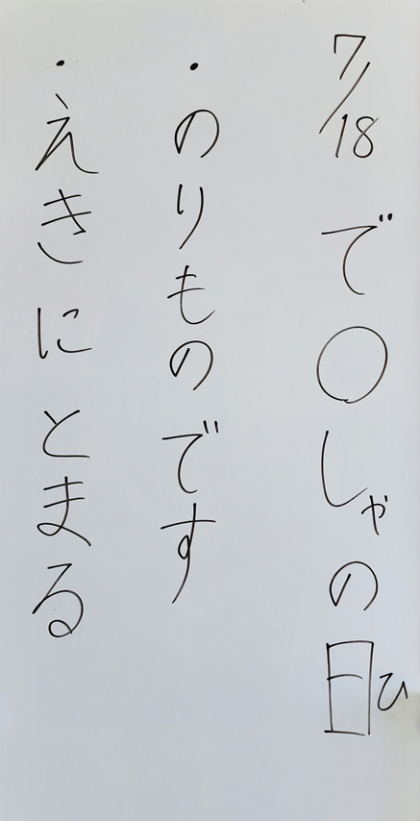 7/18 で○しゃの日ひ
・のりものです
・えきにとまる